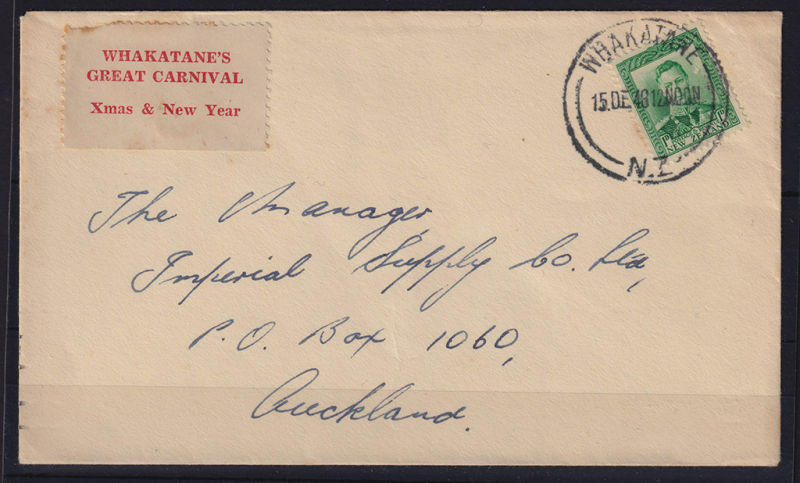 WHAKATANE'S
GREAT CARNIVAL
Xmas & New Year
WHAKATANE
15 DE 48 12 NOON
N.Z
NEW ZEALAND
The Manager,
Imperial Supply Co. Ltd,
P.O. Box 1060,
Auckland.